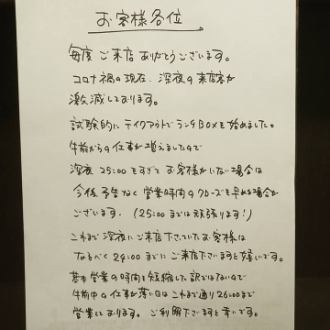 お客様各位
毎度ご来店ありがとうございます。
コロナ禍の現在、深夜の来店客が
激減しております。
試験的にテイクアウトでランチBOXを始めました。
午前からの仕事が増えましたので
深夜25:00をすぎてお客様がいない場合は
今後予告なく営業時間のクローズを早める場合が
ございます。(25:00までは頑張ります!)
これまで深夜にご来店下さっていたお客様は
なるべく24:00までにご来店下さいますと嬉しいです。
基本営業の時間を短縮した訳ではないので
午前中の仕事が薄い日はこれまで通り26:00まで
営業しております。ご利用下さいますと幸いです。